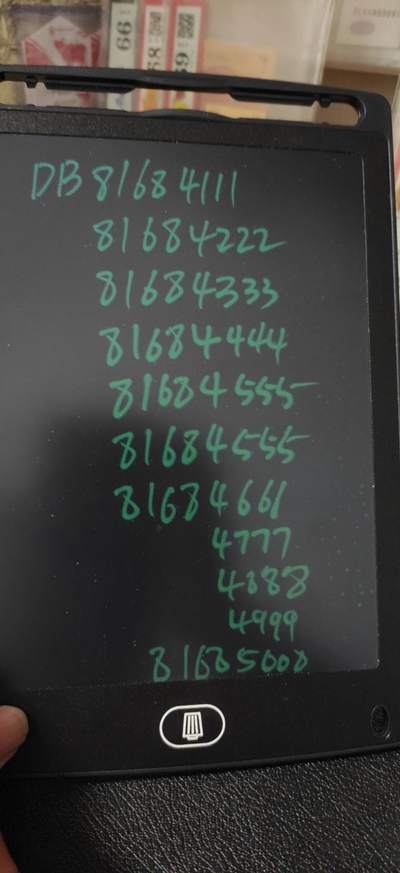 66
68
69
DB81684111
81684222
81684333
81684444
81684555
81684555
81684661
4777
4888
4999
81685000